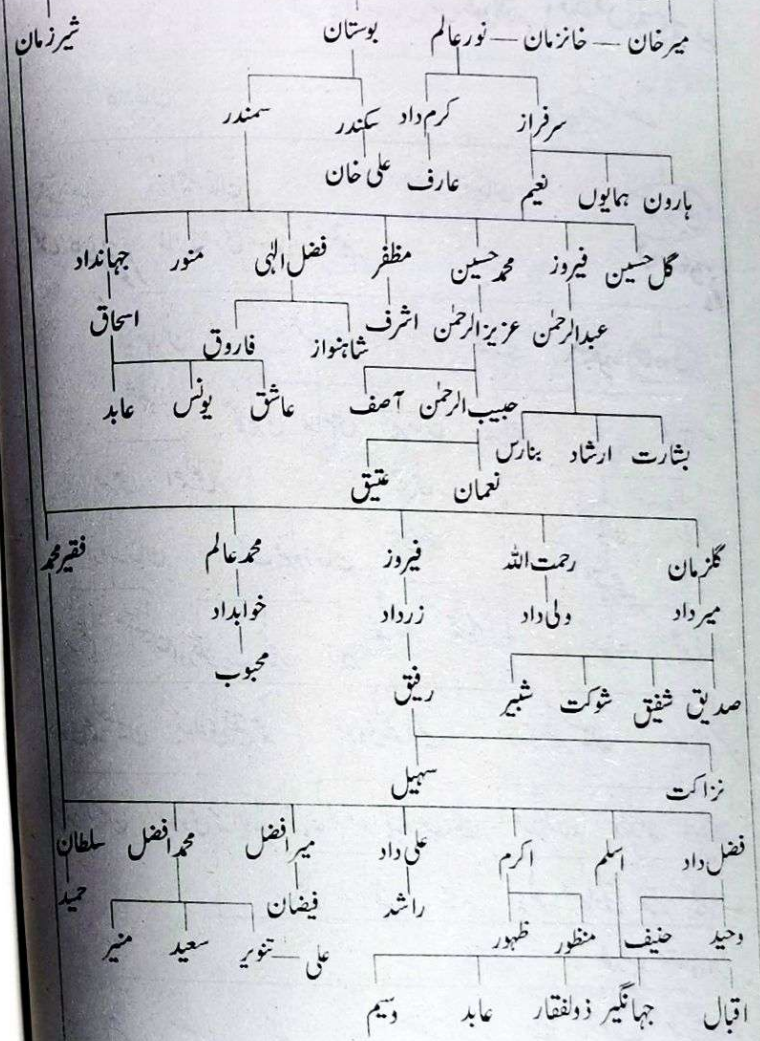 میرخان — خانزمان — نورعالم بوستان شیرزمان
سرفراز کرم داد سکندر سمندر
ہارون ہمایوں نعیم عارف علی خان
گل حسین فیروز محمد حسین مظفر فضل الٰہی منور جہانداد
عبدالرحمٰن عزیزالرحمٰن اشرف شاہنواز فاروق اسحاق
حبیب الرحمٰن آصف عاشق یونس عابد
بشارت ارشاد بنارس
نعمان عتیق
گلزمان رحمت اللہ فیروز محمد عالم فقیر محمد
میرداد ولی داد زرداد خوابداد
محبوب
صدیق شفیق شوکت شبیر رفیق
نزاکت سہیل
فضل داد اسلم اکرم علی داد میرافضل محمد افضل سلطان
راشد فیضان حمید
وحید حنیف منظور ظہور علی — تنویر سعید منیر
اقبال جہانگیر ذولفقار عابد وسیم